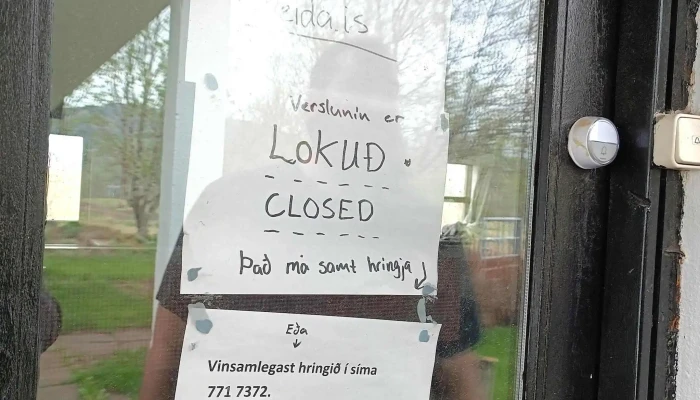 Verslunin er
LOKUÐ.
CLOSED
Það má samt hringja
Eða
Vinsamlegast hringið í síma
771 7372.